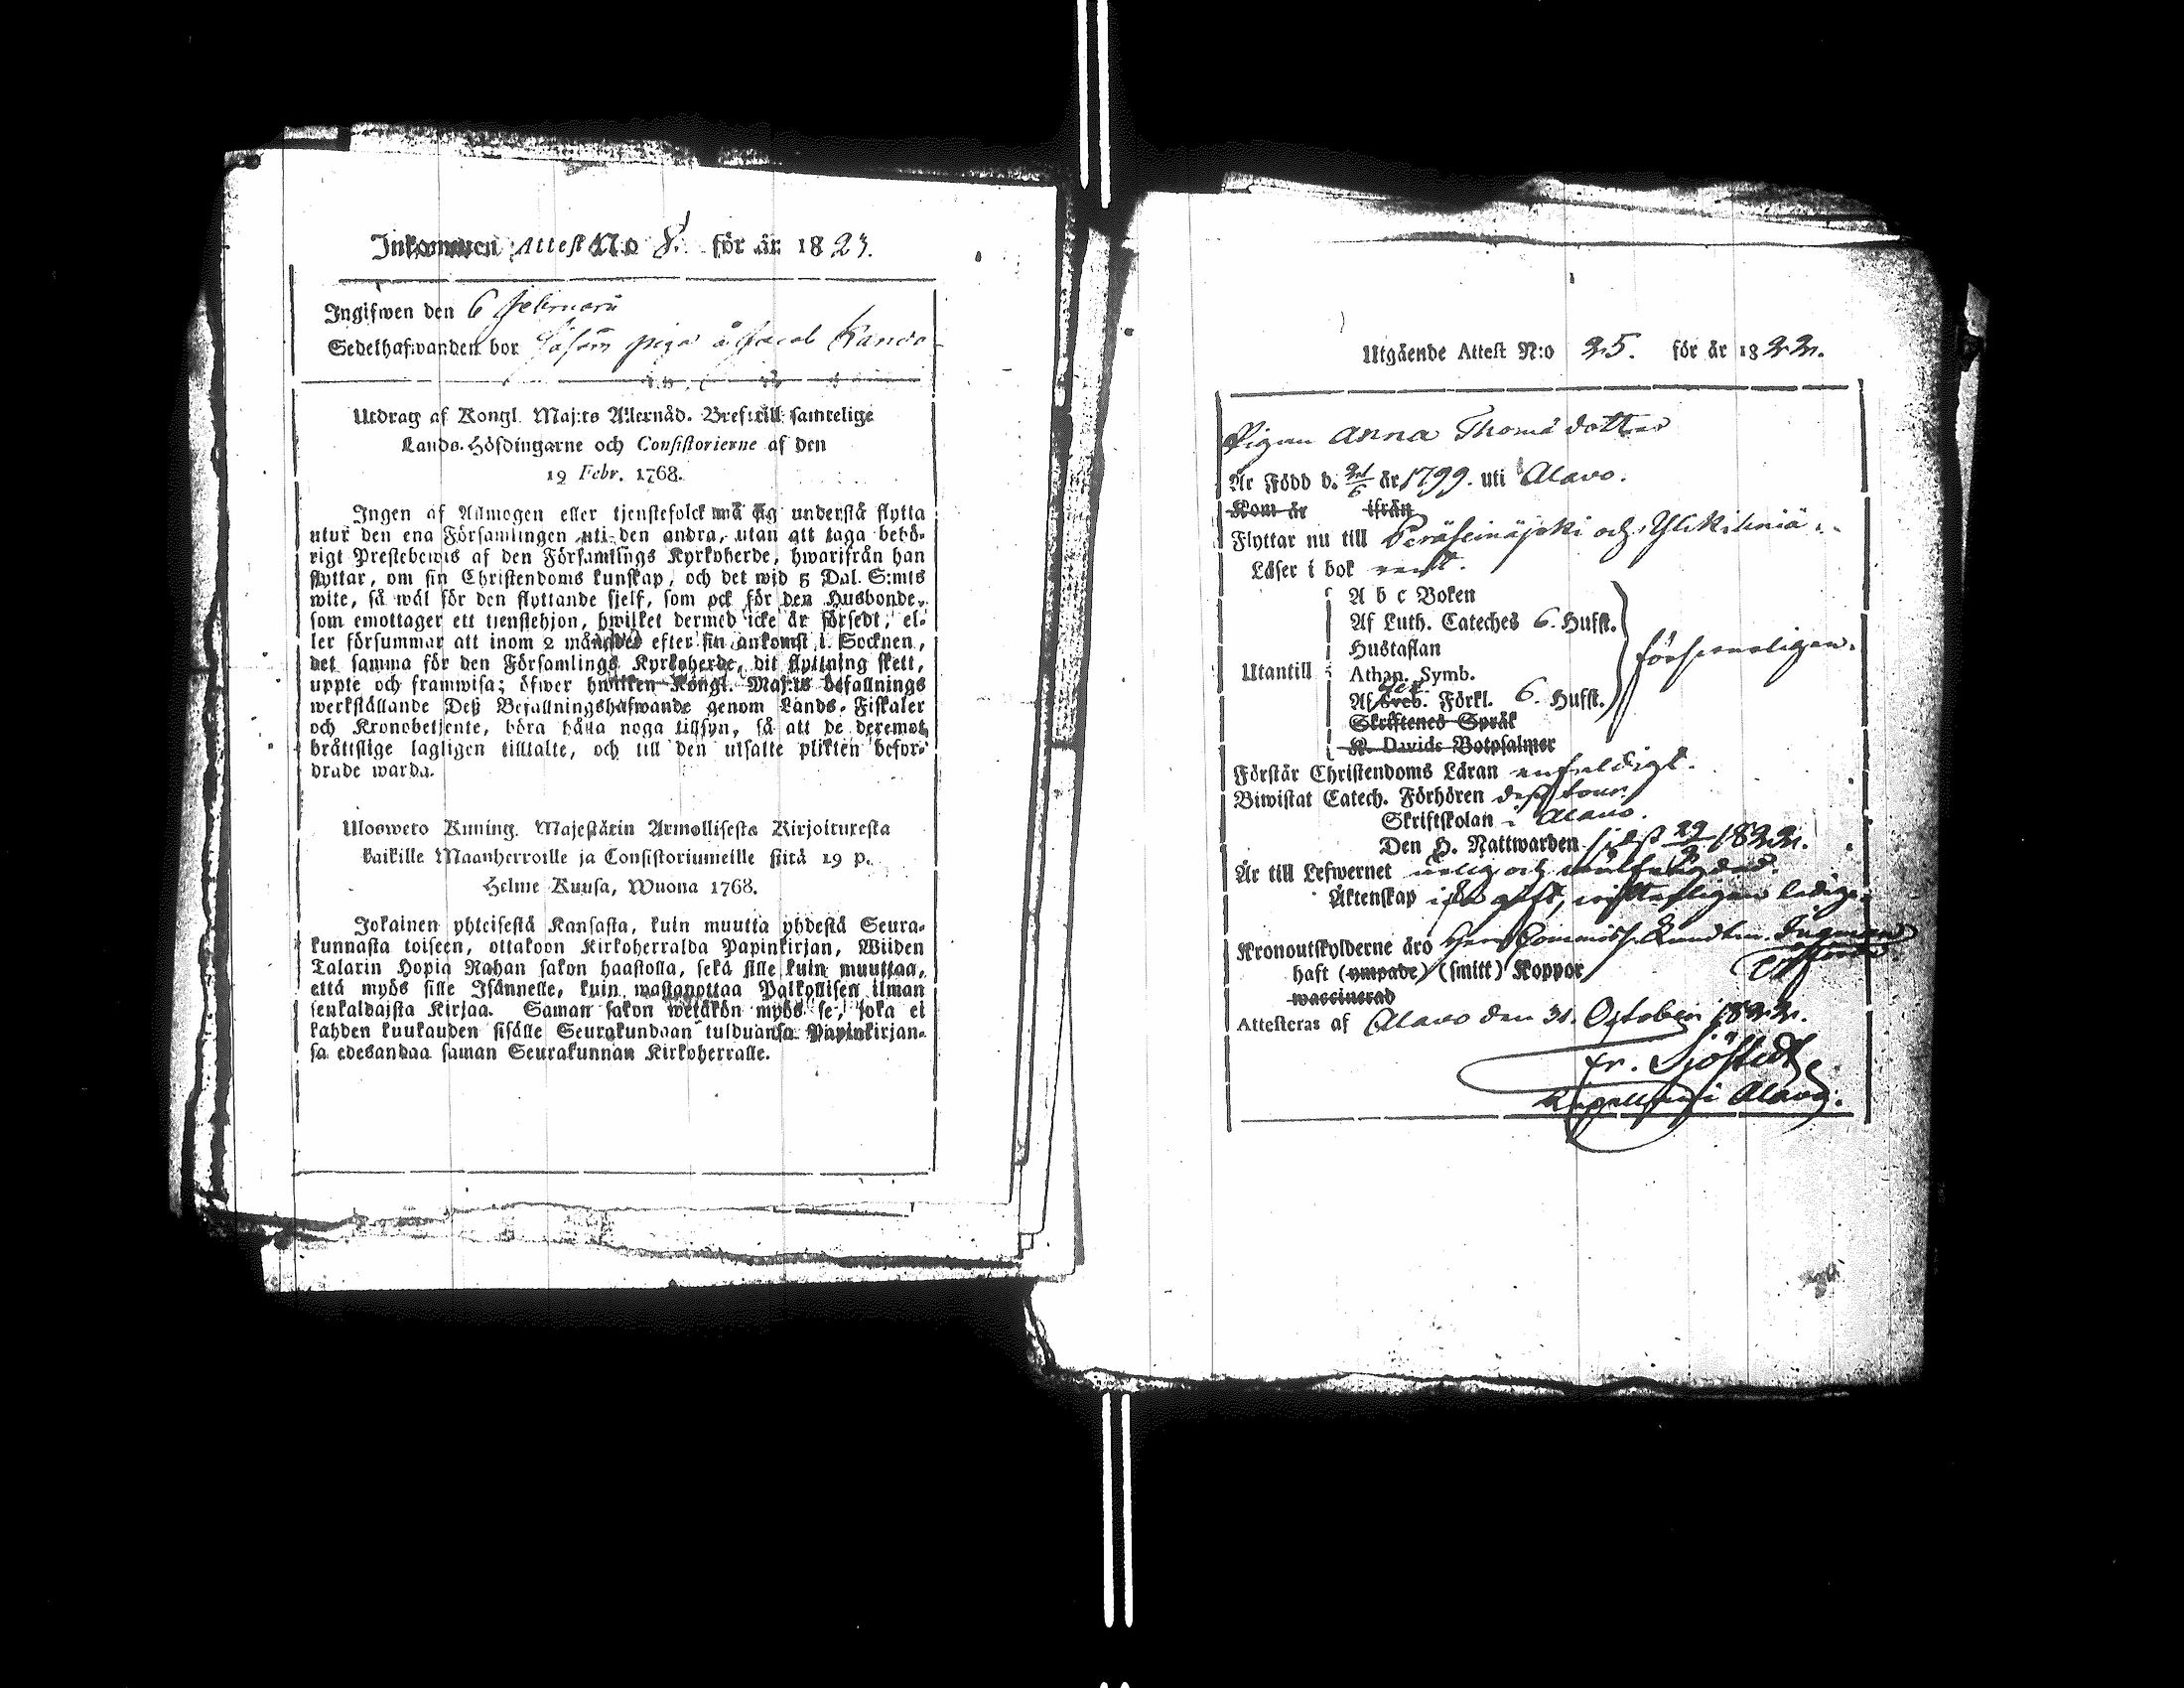 Inkommen Attest No 8. för år 1823.
Ingifwen den 6 Februarii
Sedelhafwanden bor såsom piga å Jacob
Utdrag af Kongl. Maj:ts Allernåd. Bref till samtelige
Lands-Höfdingarne och Consistorierne af den
19 Febr. 1768.
Ingen af Allmogen eller tjenstefolck må sig understå flytta
utur den ena Församlingen uti den andra, utan att taga behö-
rigt Prestebewis af den Församlings Kyrkoherde, hwarifrån han
flyttar, om sin Christendoms kunskap, och det wid 5 Dal. S:mts
wite, så wäl för den flyttande sjelf, som ock för den Husbonde,
som emottager ett tienstehjon, hwilket dermed icke är försedt, el-
ler försummar att inom 2 månader efter sin ankomst i Socknen,
det samma för den Församlings Kyrkoherde, dit flyttning skett,
uppte och framwisa; öfwer hwilken Kongl. Maj:ts befallnings
werkställande Deß Befallningshafwande genom Lands-Fiskaler
och Kronobetjente, böra hålla noga tillsyn, så att de deremot
bråttslige lagligen tilltalte, och till den utsatte plikten befor-
drade warda.
Ulosweto Kuning. Majestätin Armollisesta Kirjoituresta
kaikille Maanherroille ja Consistoriumeille siitä 19 p.
Helme Kuusa, Wuona 1768.
Jokainen yhteisestä Kansasta, kuin muutta yhdestä Seura-
kunnasta toiseen, ottakoon Kirkoherralda Papinkirjan, Wiiden
Talarin Hopia Rahan sakon haastolla, sekä sille kuin muuttaa,
että myös sille Isännelle, kuin wastanottaa Palkollisen ilman
senkaldaista Kirjaa. Saman sakon wetäkön myös se, joka ei
kahden kuukauden sisälle Seurakundaan tulduansa Papinkirjan-
sa edesandaa saman Seurakunnan Kirkoherralle.
Utgående Attest N:o 25. för år 1822.
Pigan Anna Thomædotter
Är Född d. 21/6 år 1799. uti Alavo.
Kom år ifrån
Flyttar nu till Peräseinäjoki och
Läser i bok rent.
A b c Boken
Af Luth. Cateches 6. Hufst.
Hustaflan
Utantill Athan. Symb. försvarligen.
Af Förkl. 6. Hufst.
Skriftenes Språk
K. Davids Botpsalmer
Förstår Christendoms Läran enfaldigt.
Biwistat Catech. Förhören dess
Skriftskolan i Alavo.
Den H. Nattwarden sidst 29/9 1822.
Är till Lefwernet och
Äktenskap icke gift, ledig.
Kronoutskylderne äro
haft (ympade) (smitt) Koppor
waccinerad
Attesteras af Alavo den 31. October 1822.
Fr. Sjöstedt
Kapellan i Alavo.